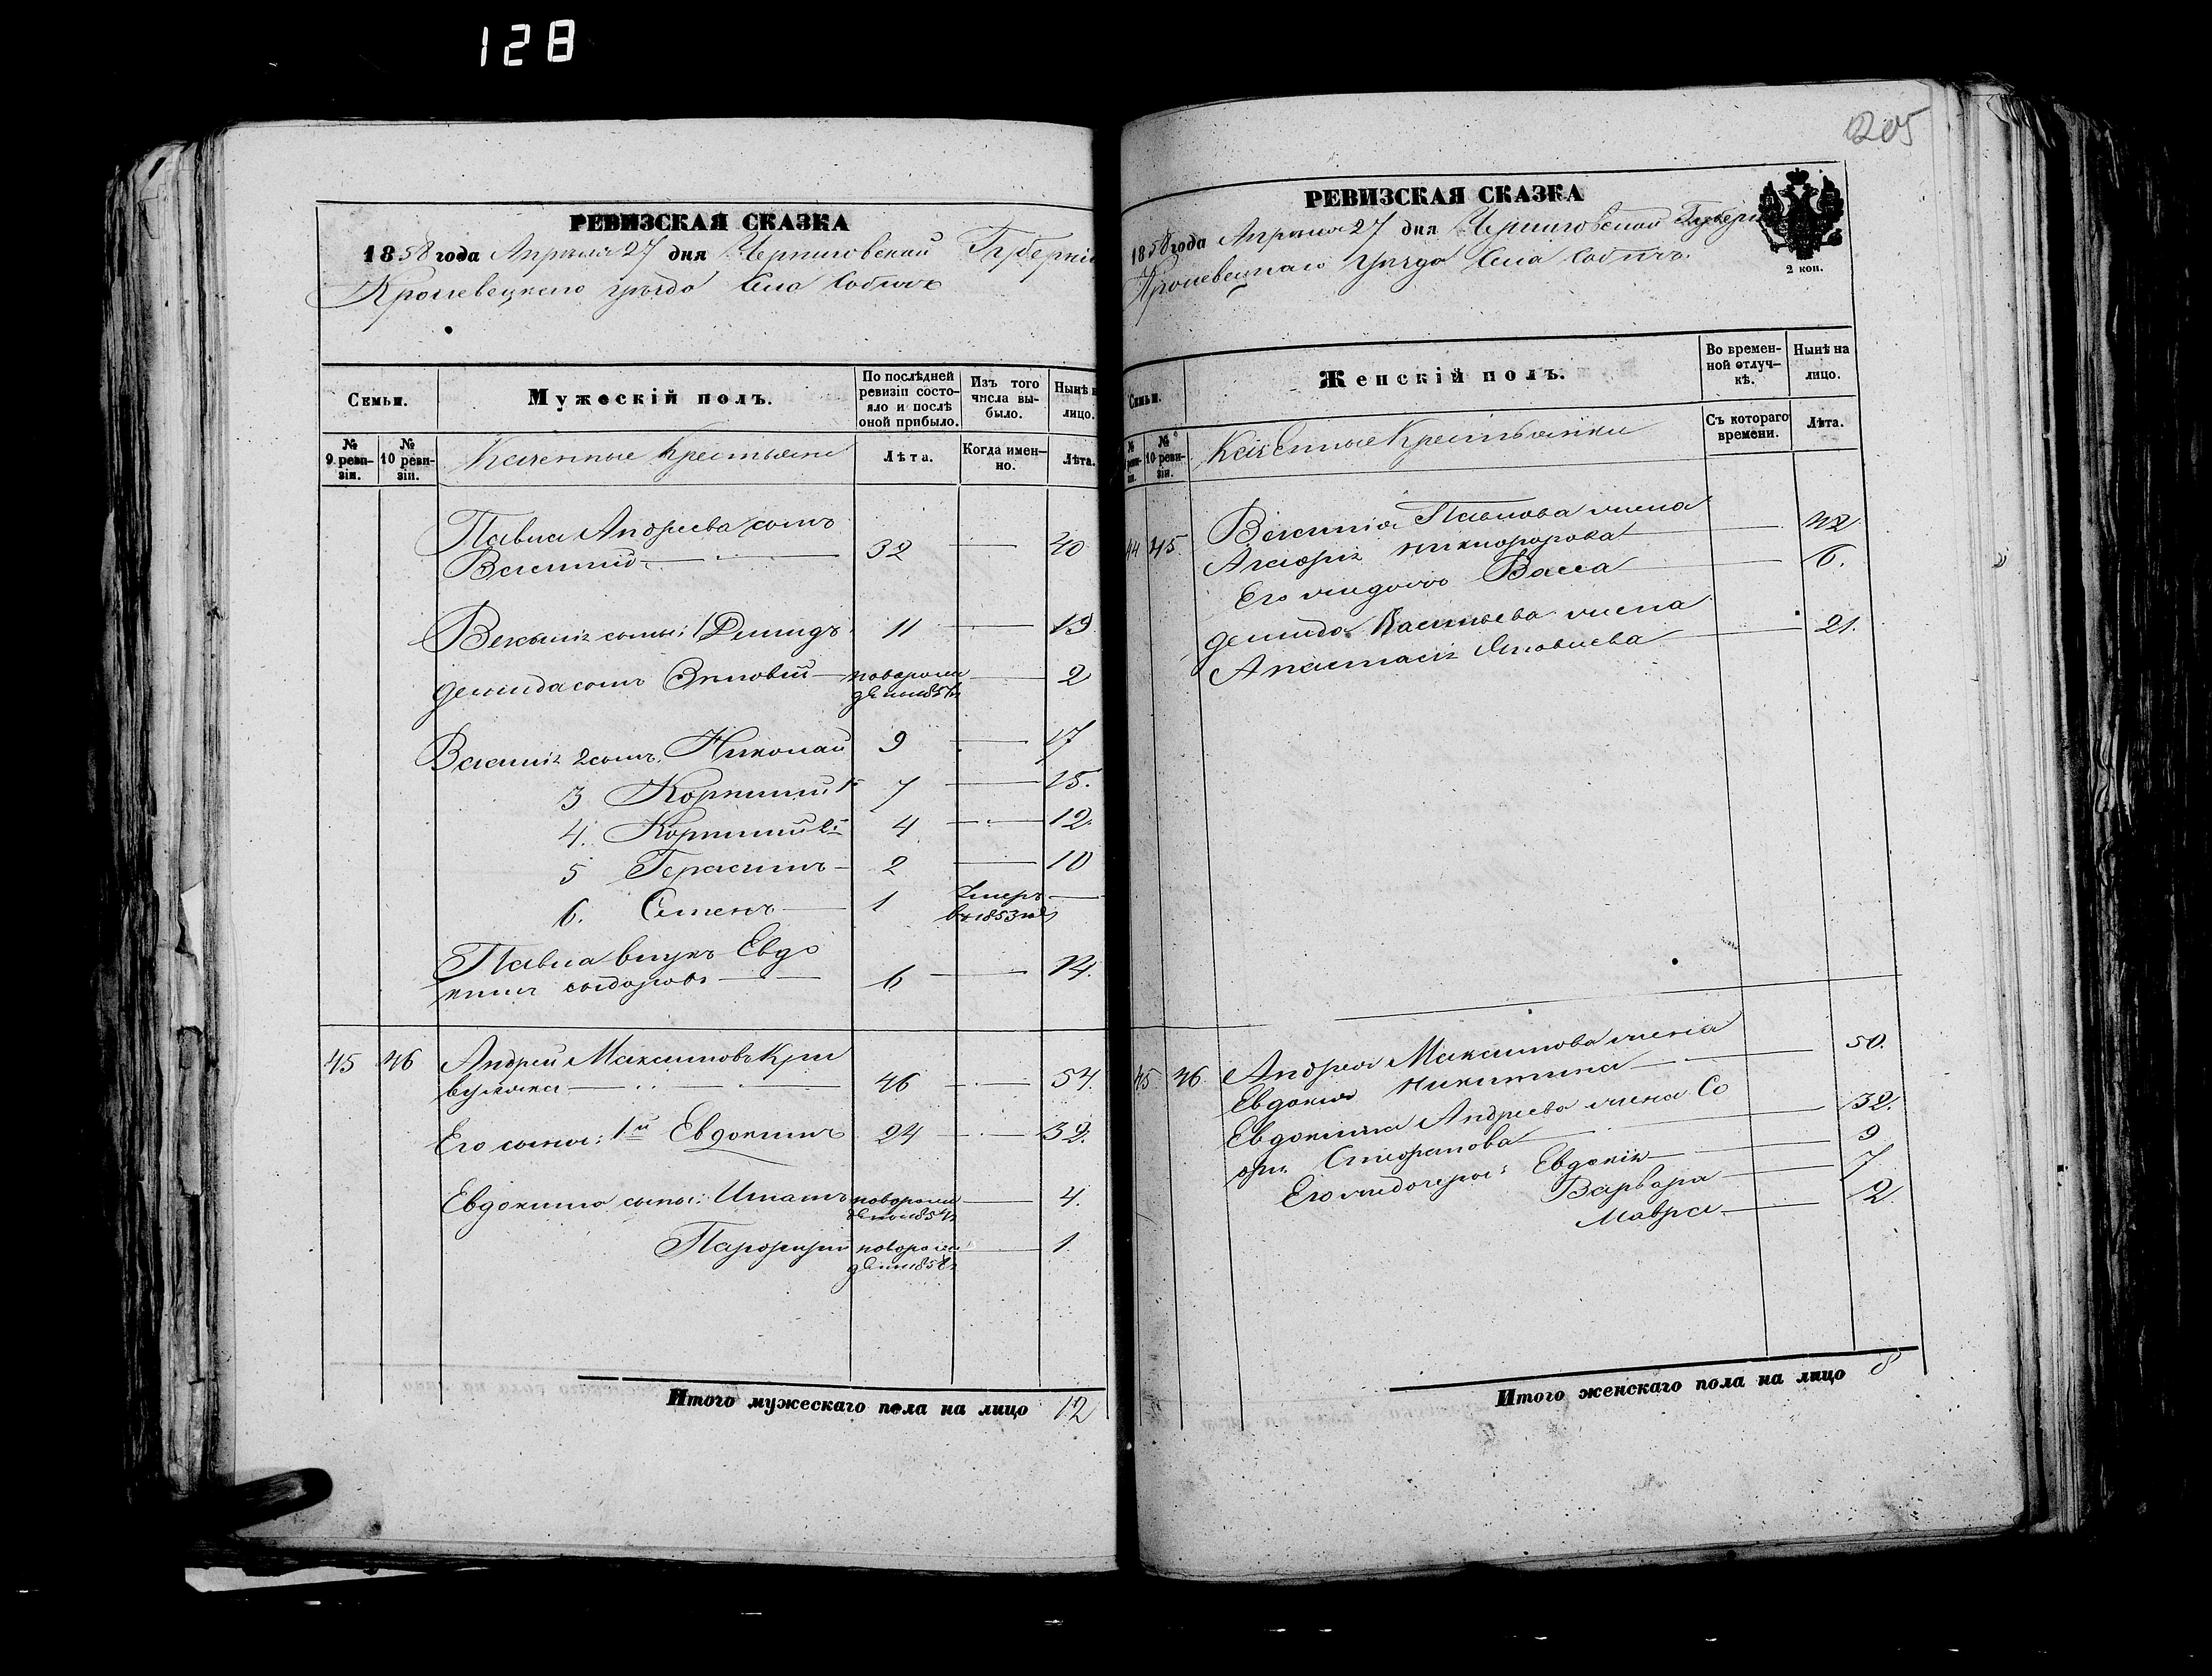 128
205
РЕВИЗСКАЯ СКАЗКА
1858 года Апреля 27 дня Черниговской Губерніи
Кролевецкаго уезда Села Собичъ
Семьи.
Мужескій полъ.
По послѣдней ревизіи состояло и послѣ оной прибыло.
Изъ того числа выбыло.
Нынѣ на лицо.
№ 9 ревизіи.
№ 10 ревизіи.
Казенные Крестьяне
Лѣта.
Когда именно.
Лѣта.
Павла Андреева сынъ
Василий 32 40
Василія сыны: 1 Демидъ 11 19
Демида сынъ Зиновій новорожденный 1856 2
Василія 2 сынъ Николай 9 17
3 Корнилий 1й 7 15.
4. Корнилий 2й 4 12.
5 Герасимъ 2 10
6. Семенъ 1 Умеръ въ 1853 год
Павла внукъ Евдо
кимъ 6 14.
45 46 Андрей Максимовъ Кри
46 54.
Его сыны: 1й Евдокимъ 24 32.
Евдокима сыны: Игнатъ новорожденный 1854 4.
новорожденный 1858 1
Итого мужескаго пола на лицо 12
РЕВИЗСКАЯ СКАЗКА
1858 года Апреля 27 дня Черниговской Губерніи
Кролевецкаго уезда Села Собичъ.
2 коп.
Семьи.
Женскій полъ.
Во временной отлучкѣ.
Нынѣ на лицо.
№ ревизіи.
№ 10 ревизіи.
Казенные Крестьянки
Съ котораго времени.
Лѣта.
44 45. Василия Павлова жена
Агафія Никифорова 42
Его жъ дочь Васса 6.
Демида Васильева жена
Анастасія Яковлева 21.
45. 46. Андрея Максимова жена
Евдокия Никитина 50.
Евдокима Андреева жена Со
фія 32.
Его жъ дочери: Евдокія 9
Варвара 7
Мавра 12.
Итого женскаго пола на лицо 8